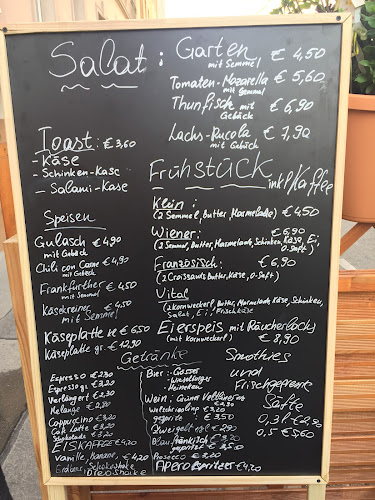 Salat:
Garten € 4,50
mit Semmel
Tomaten-Mozarella € 5,60
mit Semmel
Thunfisch mit Gebäck € 6,90
Lachs-Rucola € 7,90
mit Gebäck
Toast: € 3,60
- Käse
- Schinken-Käse
- Salami-Käse
Frühstück
inkl. Kaffee
Klein:
(2 Semmel, Butter, Marmelade) € 4,50
Wiener: € 6,90
(2 Semmel, Butter, Marmelade, Schinken, Käse, Ei,
O-Saft)
Französisch: € 6,90
(2 Croissants Butter, Käse, O-Saft)
Vital
(2 Kornweckerl, Butter, Marmelade, Käse, Schinken,
Salat, Ei, Frischkäse
Eierspeis mit Räucherlachs
(mit Kornweckerl) € 8,90
Speisen
Gulasch € 4,90
mit Gebäck
Chili con Carne € 4,90
mit Gebäck
Frankfurther € 4,50
mit Semmel
Käsekreiner € 4,50
mit Semmel
Käseplatte kl € 6,50
Käseplatte gr. € 12,90
Getränke
Espresso € 2,30
Espresso gr. € 3,20
Verlängert € 2,80
Melange € 2,90
Cappuccino € 3,20
Cafe Latte € 3,20
Schokolade € 3,20
EISKAFFEE € 4,20
Vanille, Banane, € 4,20
Erdbeer, Schokoshake
Bier: Gösser
Wein: Grüner Veltliner
gespritz € 3,50
Zweigelt
Blaufränkisch
Prosecco € 3,20
Apero Spritzer € 4,20
Smoothies
und
Frischgepresste
Säfte
0,3l € 2,90
0,5 € 3,60